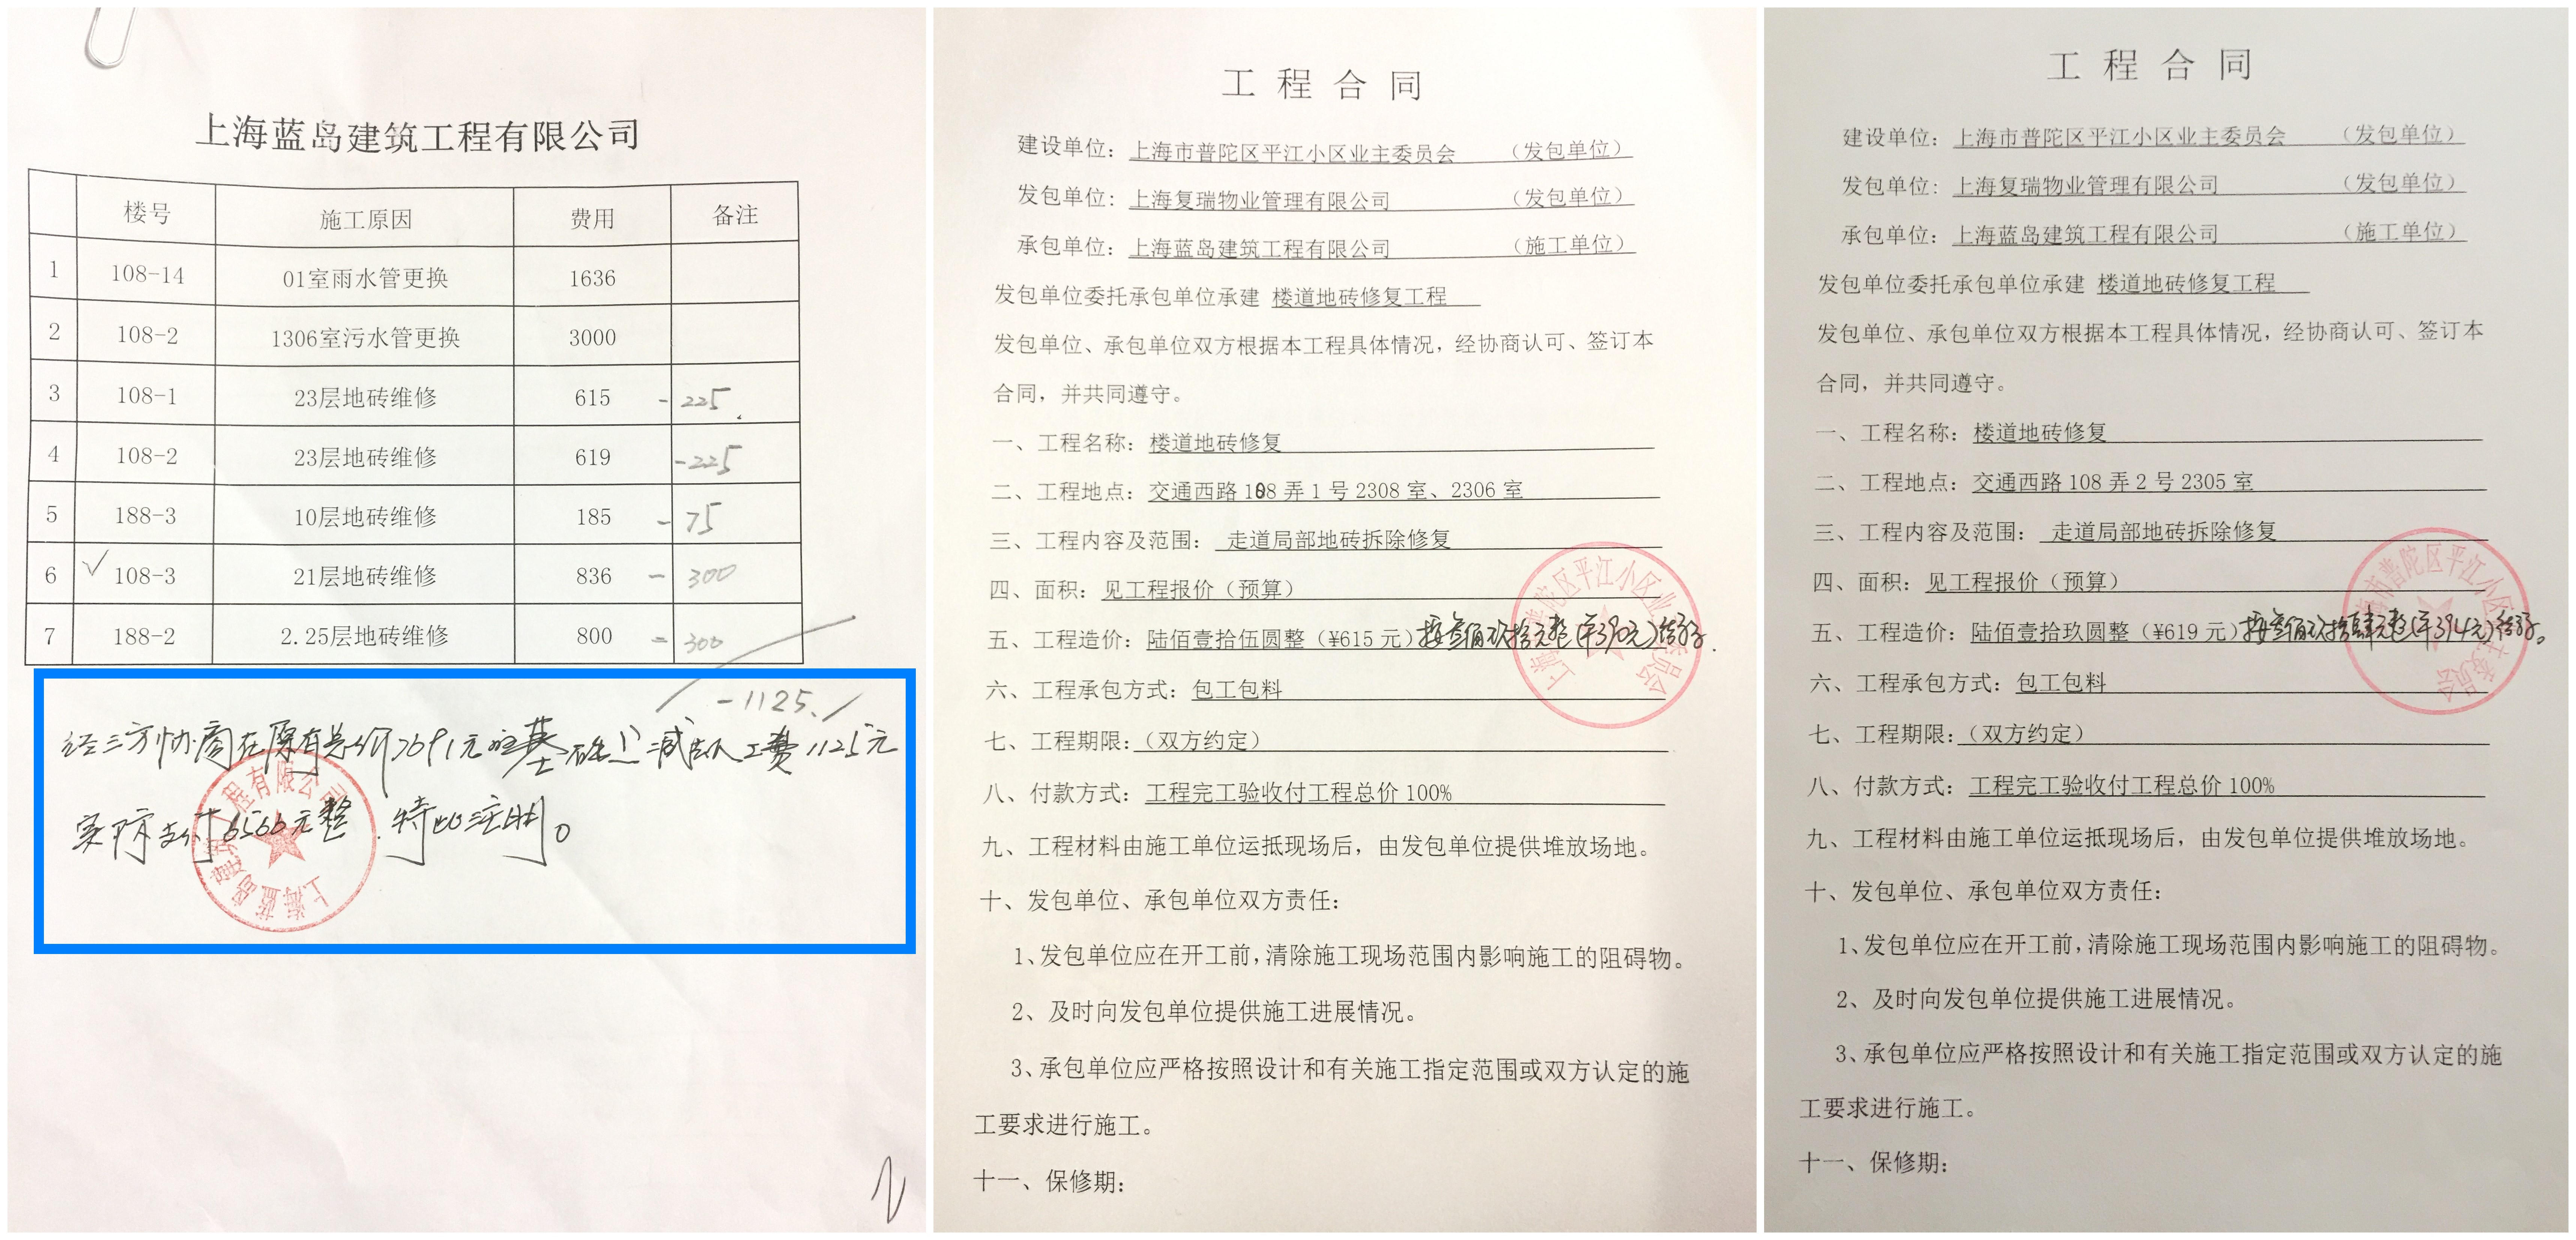 上海蓝岛建筑工程有限公司
楼号 施工原因 费用 备注
1 108-14 01室雨水管更换 1636
2 108-2 1306室污水管更换 3000
3 108-1 23层地砖维修 615 -225
4 108-2 23层地砖维修 619 -225
5 188-3 10层地砖维修 185 -75
6 √ 108-3 21层地砖维修 836 -300
7 188-2 2.25层地砖维修 800 -300
-1125.
经三方协商在原有总价7691元的基础上减去人工费1125元
实际支付6566元整.特此注明。
上海蓝岛建筑工程有限公司
工程合同
建设单位：上海市普陀区平江小区业主委员会（发包单位）
发包单位：上海复瑞物业管理有限公司（发包单位）
承包单位：上海蓝岛建筑工程有限公司（施工单位）
发包单位委托承包单位承建 楼道地砖修复工程
发包单位、承包单位双方根据本工程具体情况，经协商认可、签订本
合同，并共同遵守。
一、工程名称：楼道地砖修复
二、工程地点：交通西路108弄1号2308室、2306室
三、工程内容及范围：走道局部地砖拆除修复
四、面积：见工程报价（预算）
五、工程造价：陆佰壹拾伍圆整（¥615元）按叁佰玖拾元整(￥390元)结算.
六、工程承包方式：包工包料
七、工程期限：（双方约定）
八、付款方式：工程完工验收付工程总价100%
九、工程材料由施工单位运抵现场后，由发包单位提供堆放场地。
十、发包单位、承包单位双方责任：
1、发包单位应在开工前，清除施工现场范围内影响施工的阻碍物。
2、及时向发包单位提供施工进展情况。
3、承包单位应严格按照设计和有关施工指定范围或双方认定的施
工要求进行施工。
十一、保修期：
工程合同
建设单位：上海市普陀区平江小区业主委员会（发包单位）
发包单位：上海复瑞物业管理有限公司（发包单位）
承包单位：上海蓝岛建筑工程有限公司（施工单位）
发包单位委托承包单位承建 楼道地砖修复工程
发包单位、承包单位双方根据本工程具体情况，经协商认可、签订本
合同，并共同遵守。
一、工程名称：楼道地砖修复
二、工程地点：交通西路108弄2号2305室
三、工程内容及范围：走道局部地砖拆除修复
四、面积：见工程报价（预算）
五、工程造价：陆佰壹拾玖圆整（¥619元）按叁佰玖拾肆元整(￥394元)结算。
六、工程承包方式：包工包料
七、工程期限：（双方约定）
八、付款方式：工程完工验收付工程总价100%
九、工程材料由施工单位运抵现场后，由发包单位提供堆放场地。
十、发包单位、承包单位双方责任：
1、发包单位应在开工前，清除施工现场范围内影响施工的阻碍物。
2、及时向发包单位提供施工进展情况。
3、承包单位应严格按照设计和有关施工指定范围或双方认定的施
工要求进行施工。
十一、保修期：